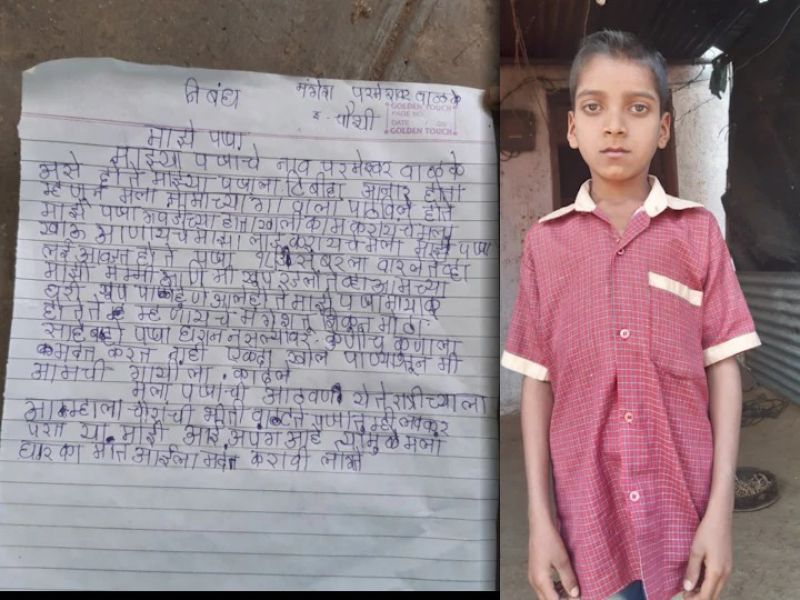 निबंध
मंगेश परमेश्वर वाळके
इ- चौथी
GOLDEN TOUCH
PAGE NO.
DATE
GOLDEN TOUCH
माझे पपा
माझ्या पपाचे नाव परमेश्वर वाळके
असे होते माझ्या पपाला टिबीहा आजार होता
म्हणून मला मामाच्या गावाला पाठविले होते
माझे पपा गवंड्याच्या हाता खाली काम करायचे मला
खाऊ आणायचे माझा लाड करायचे मला माझे पपा
लई आवडत होते पपा वारले तेव्हा
माझी मम्मी आणि मी खूप रडलो तेव्हा आमच्या
घरी खूप पाव्हणे आले होते माझे पपा मायाळू
होते ते म्हणायचे मंगेश तू शिकून मोठा
साहेब हो पपा घरात नसल्यावर कुणीच कुणाला
मदत करत नाही एकदा खोल पाण्यातून मी
आमची गायीला काढले
मला पपाची आठवण येते रात्रीच्याला
आम्हाला चोरांची भीती वाटते पपा तुम्ही लवकर
परत या माझी आई अपंग आहे त्यामुळे मला
घर कामात आईला मदत करावी लागते